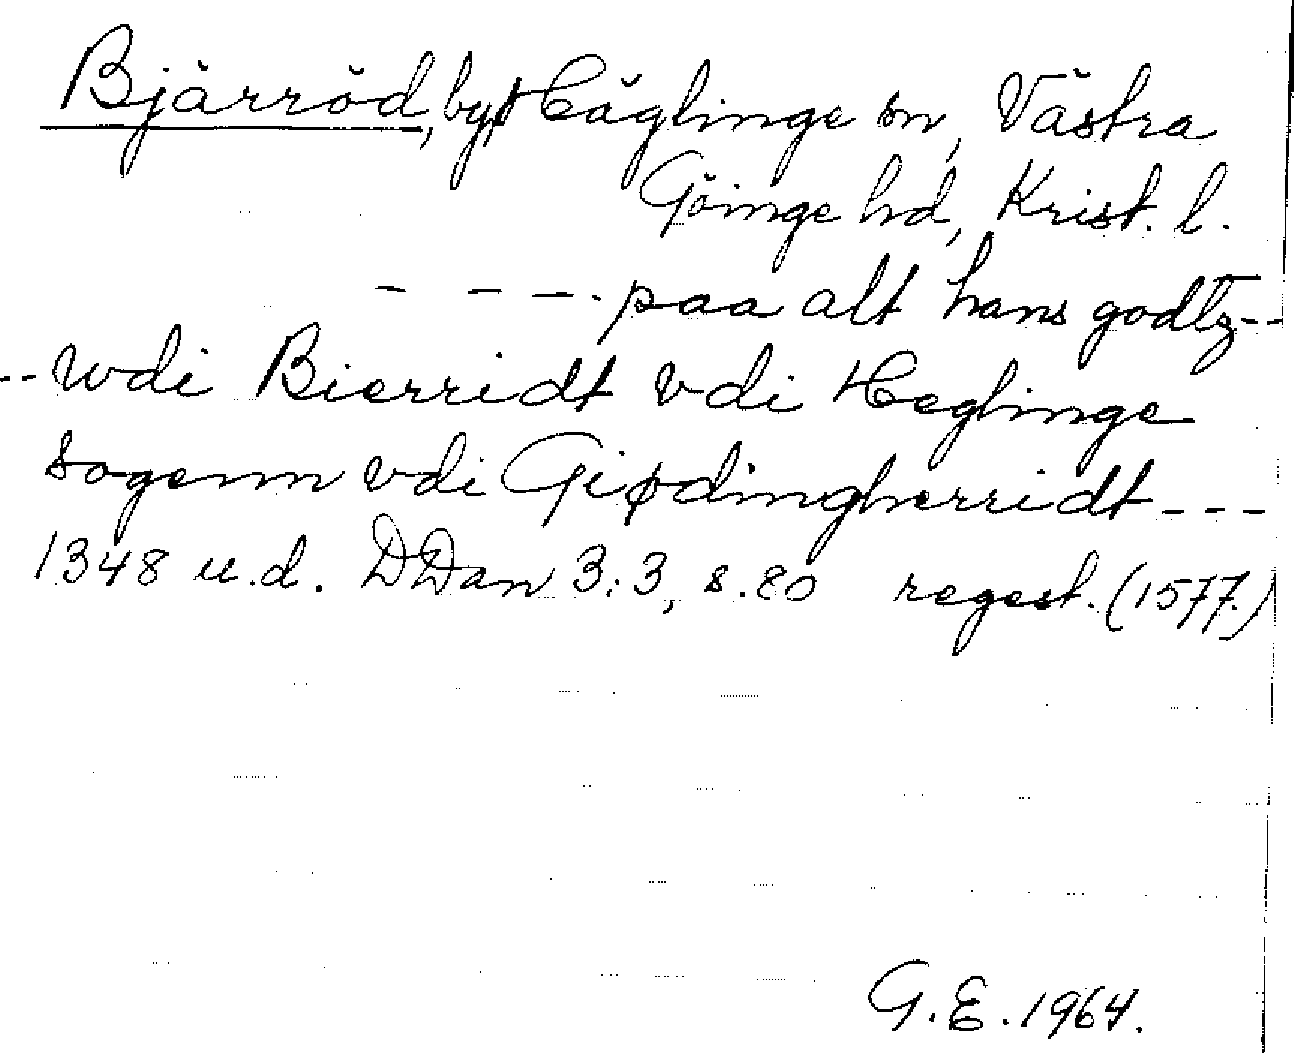 Bjärröd, by, Häglinge sn, Västra
Göinge hd, Krist. l.
- - - paa alt hans godtz --
-- wdi Bierridt vdi Heglinge
sogenn vdi Giødingherridt ---
1348 u.d. DDan 3:3, s.80 regest. (1577.)
G.E. 1964.